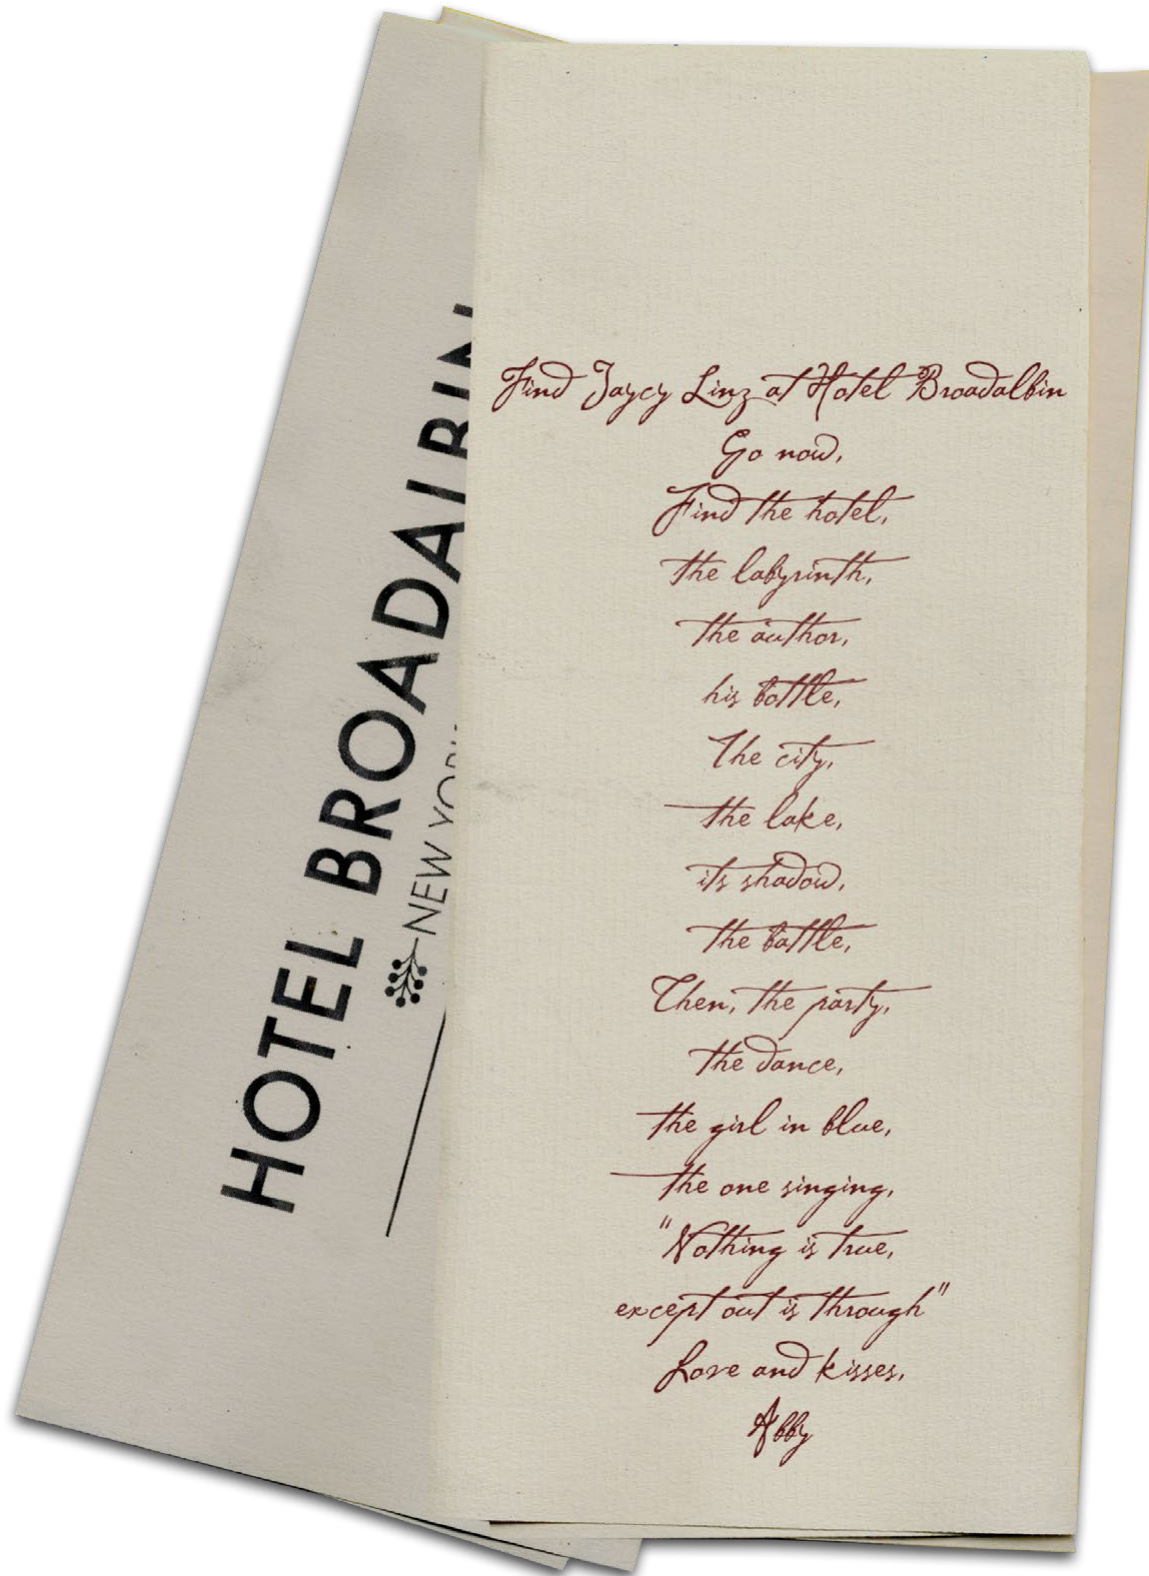 HOTEL BROADALBIN
NEW YORK
Find Jaycy Linz at Hotel Broadalbin
Go now,
Find the hotel,
the labyrinth,
the author,
his bottle,
The city,
the lake,
its shadow,
the battle,
Then, the party,
the dance,
the girl in blue,
the one singing,
"Nothing is true,
except out is through"
Love and kisses,
Abby